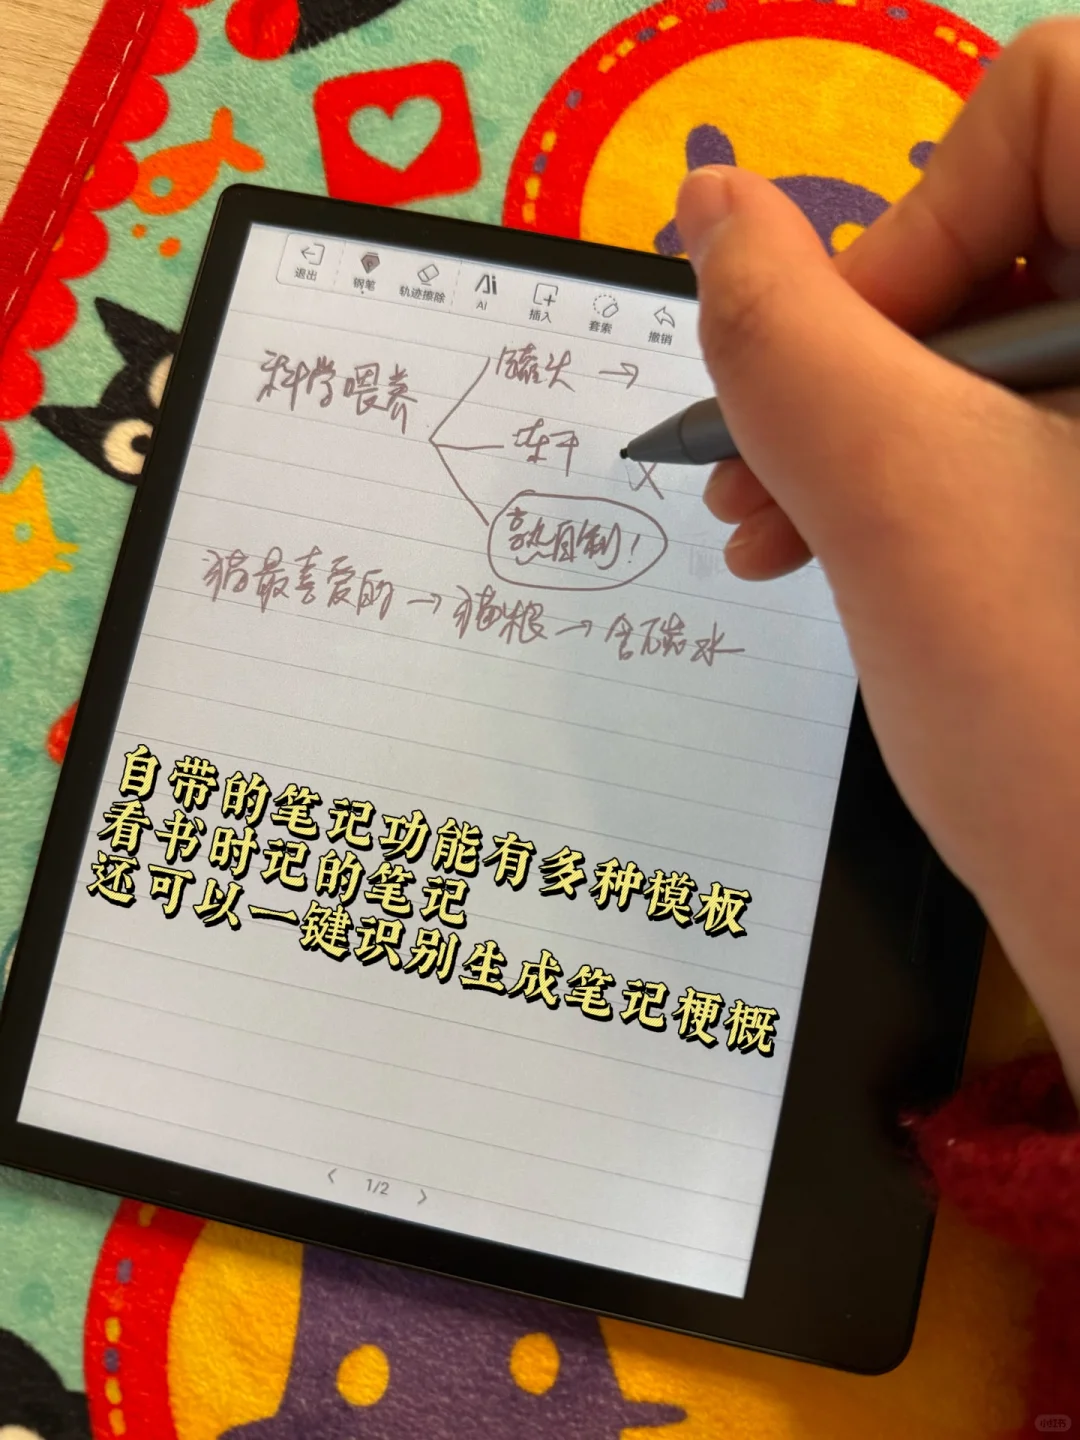 退出 钢笔 轨迹擦除 AI 插入 套索 撤销
科学喂养
罐头 →
冻干 X
熟自制!
猫最喜爱的 → 猫粮 → 含碳水
自带的笔记功能有多种模板
看书时记的笔记
还可以一键识别生成笔记梗概
< 1/2 >
小红书